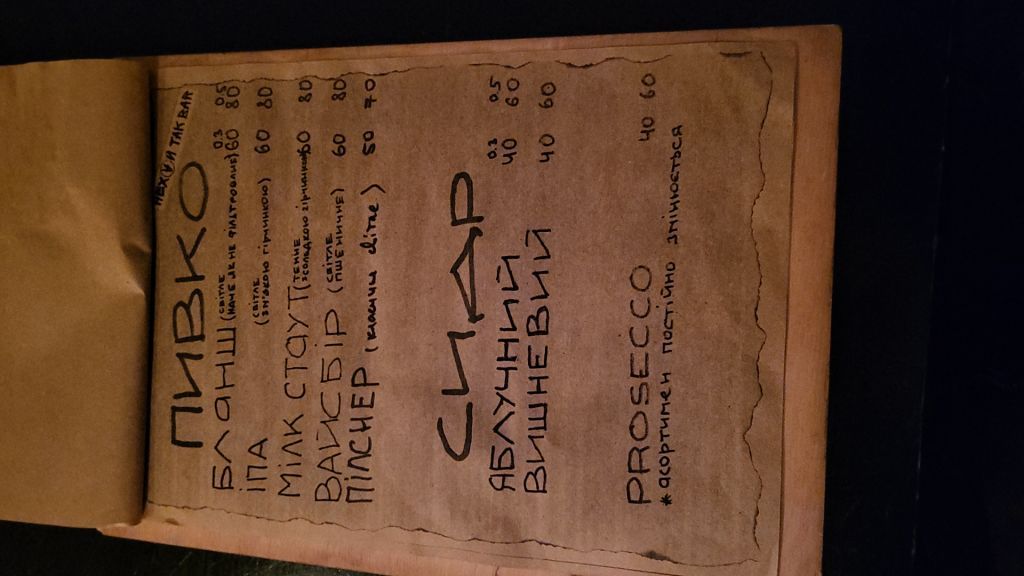 ТАК BAR
ПИВКО
0.3 0.5
БЛАНШ (СВІТЛЕ НАМЕЖЕНЕ ФІЛЬТРОВАНЕ) 60 80
ІПА (СВІТЛЕ З М'ЯКОЮ ГІРЧИНКОЮ) 60 80
МІЛК СТАУТ (ТЕМНЕ ЗСОЛОДКОЮ ГІРЧИНКОЮ) 60 80
ВАЙСБІР (СВІТЛЕ ПШЕНИЧНЕ) 60 80
ПІЛСНЕР (класичн світле) 50 70
СИДР
0.3 0.5
ЯБЛУЧНИЙ 40 60
ВИШНЕВИЙ 40 60
PROSECCO 40 60
* асортимен постійно змінюється